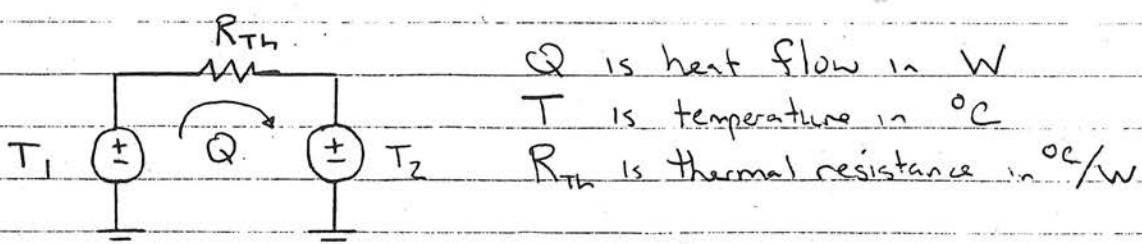 R_Th
Q is heat flow in W
T is temperature in °C
T_1 + − Q + − T_2
R_Th is thermal resistance in °C/W